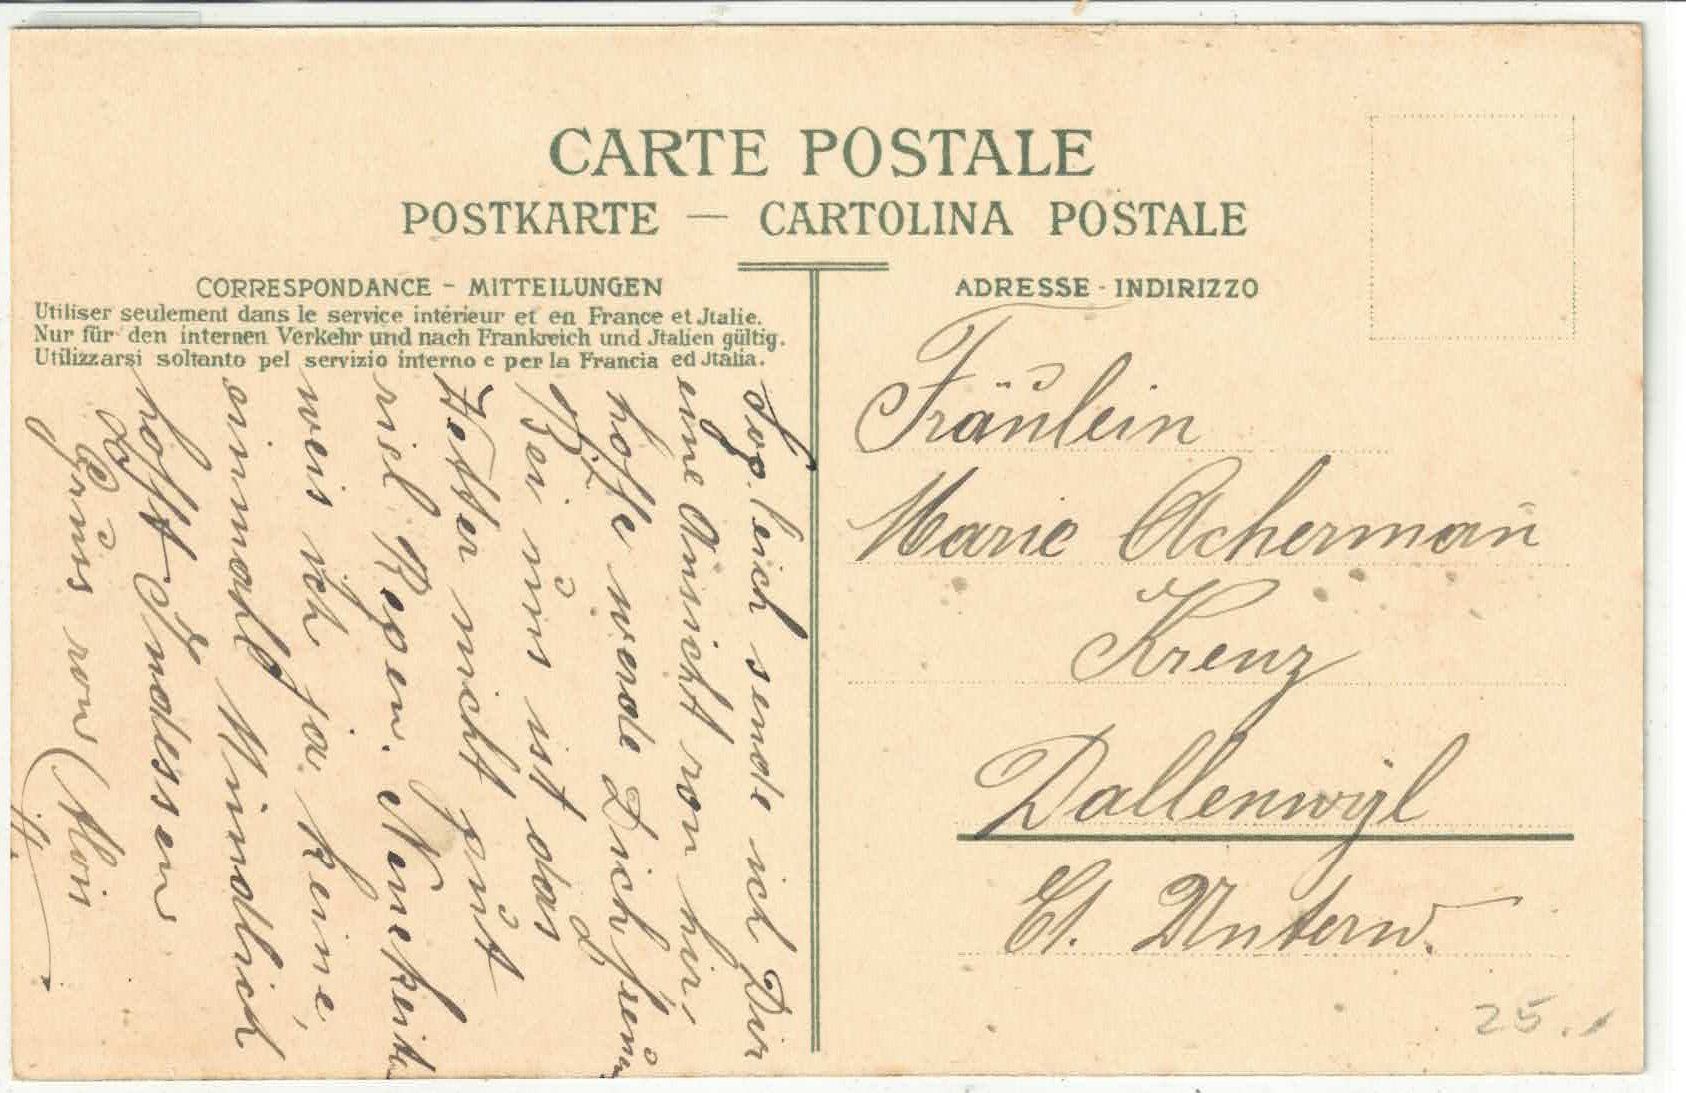 CARTE POSTALE
POSTKARTE — CARTOLINA POSTALE
CORRESPONDANCE - MITTEILUNGEN
Utiliser seulement dans le service intérieur et en France et Jtalie.
Nur für den internen Verkehr und nach Frankreich und Jtalien gültig.
Utilizzarsi soltanto pel servizio interno e per la Francia ed Jtalia.
Sogleich sende ich Dir
eine Ansicht von hir,
hoffe werde Dich freün
Bei uns ist das
Wetter nicht gut
viel Regen. Neuekeiten
weis ich ja keine,
einmahl Mindlich
hofft Indessen
Grüis von Alois
ADRESSE - INDIRIZZO
Fräulein
Marie Achermañ
Kreuz
Dallenwyl
Ct. Unterw.
25.